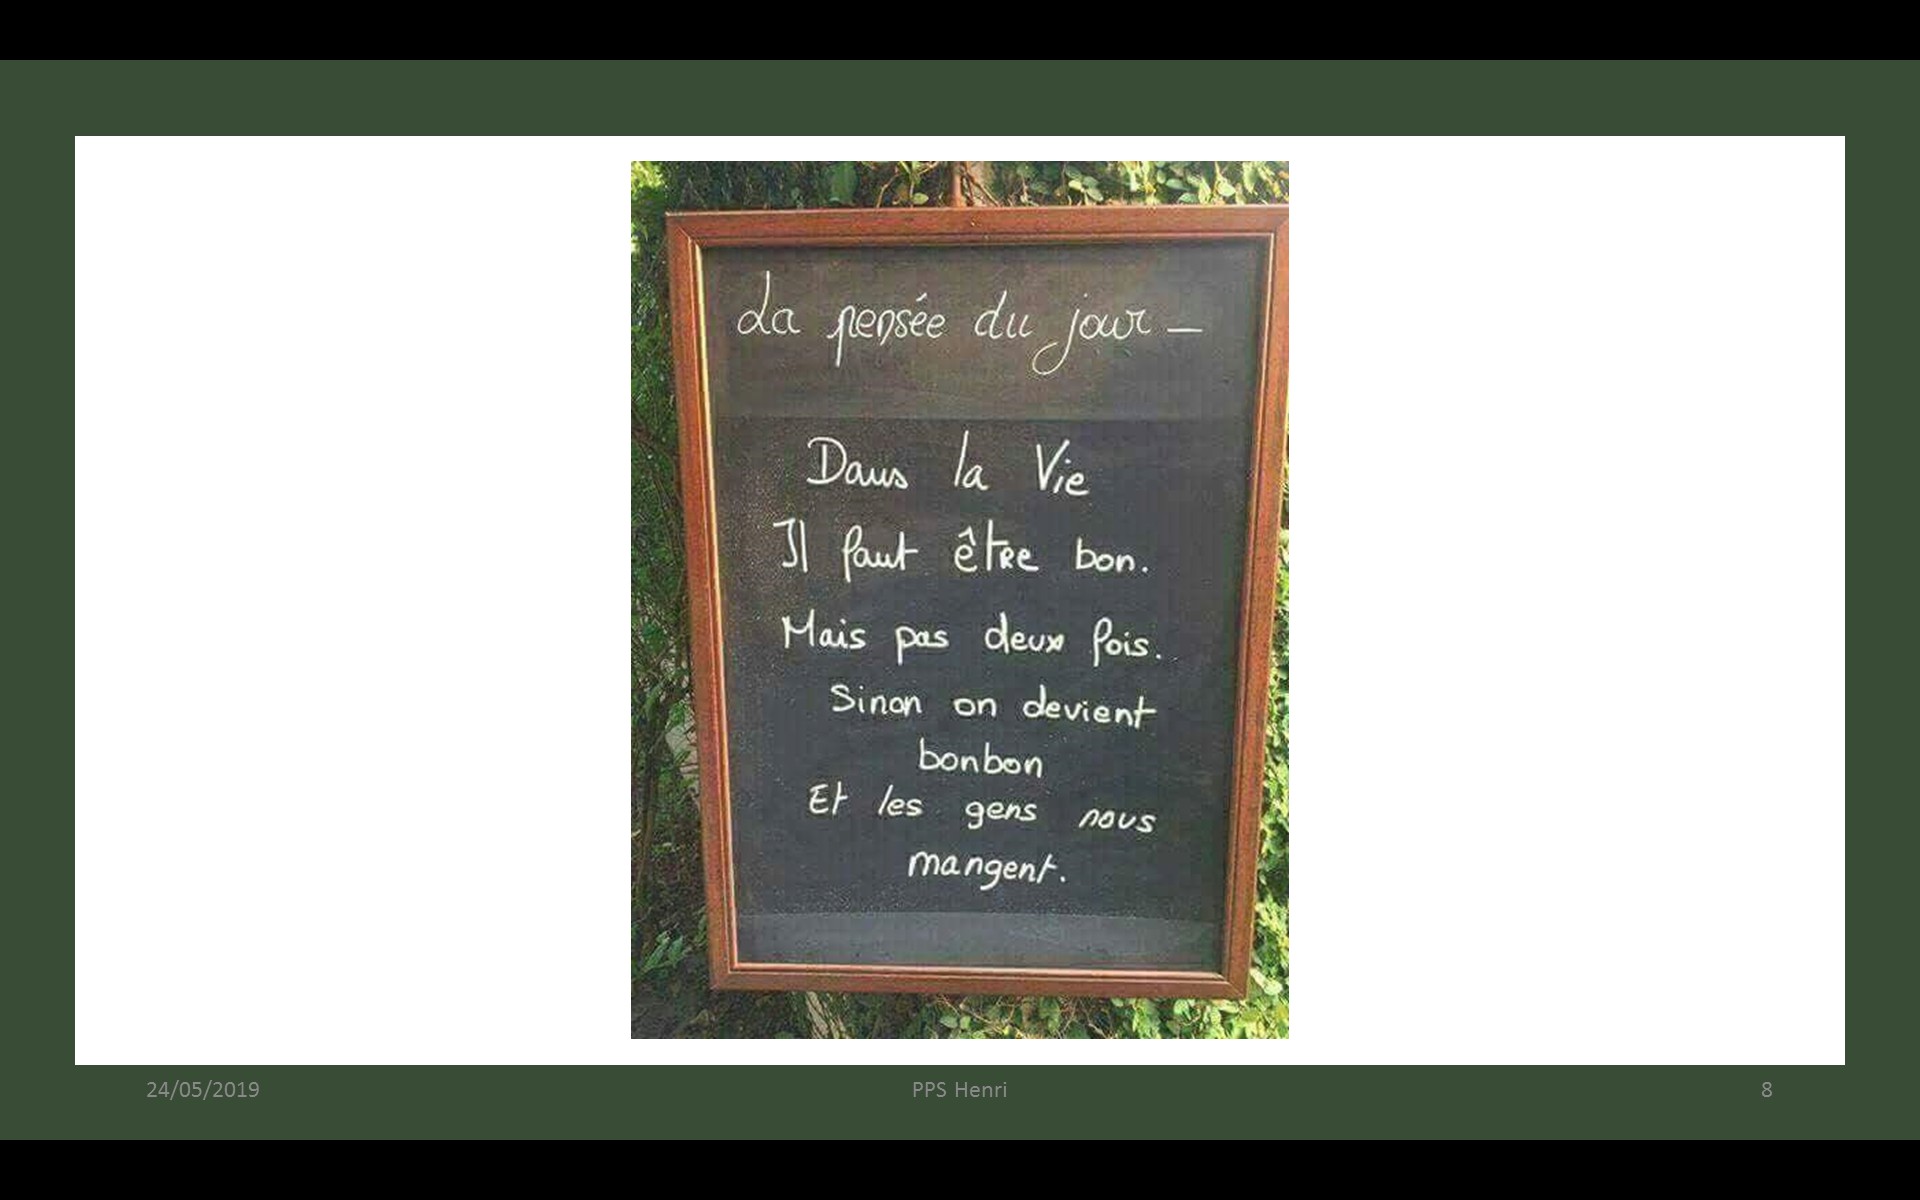 La pensée du jour —
Dans la Vie
Il faut être bon.
Mais pas deux fois.
Sinon on devient
bonbon
Et les gens nous
mangent.
24/05/2019 PPS Henri 8